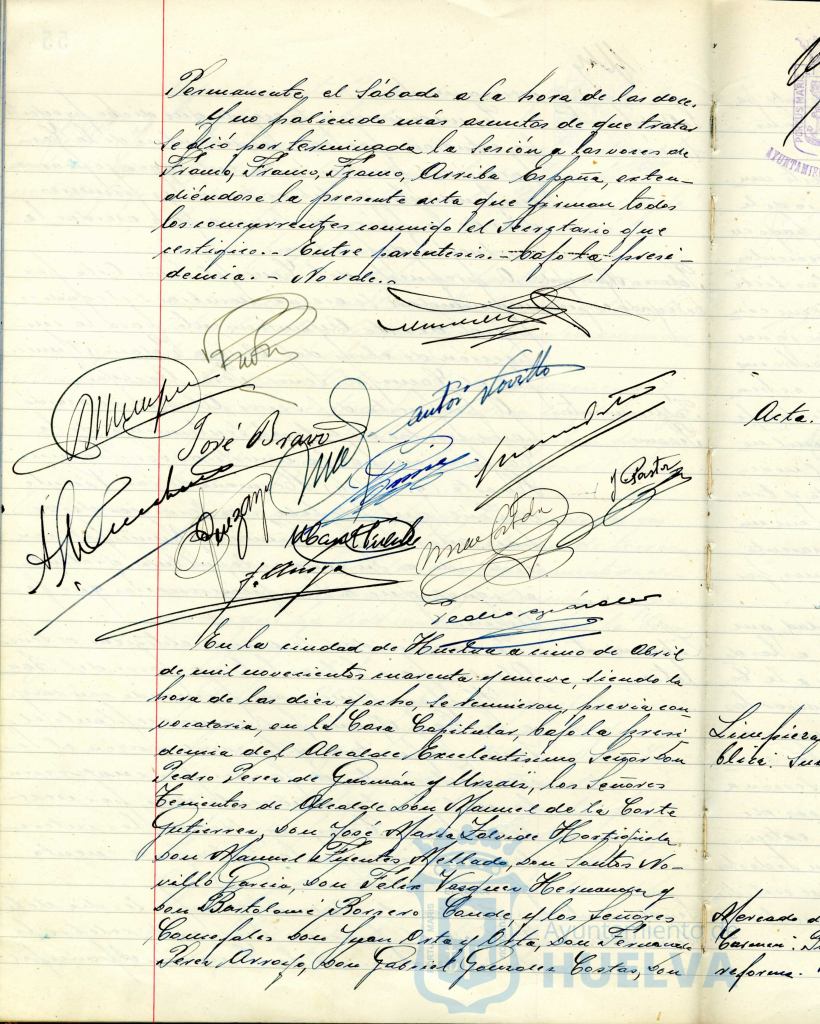 Permanente, el Sábado a la hora de las doce.
Y no habiendo más asuntos de que tratar
se dió por terminada la Sesión a las voces de
Franco, Franco, Franco, Arriba España, exten-
diéndose la presente acta que firman todos
los concurrentes conmigo el Secretario que
certifico.- Entre parentesis.- bajo la presi-
dencia.- No vale.-
Antos Novillo
José Bravo
J. Pastor
En la ciudad de Huelva a cinco de Abril
de mil novecientos cuarenta y nueve, siendo la
hora de las diez y ocho, se reunieron, previa con
vocatoria, en la Casa Capitular, bajo la presi
dencia del Alcalde Excelentisimo Señor Don
Pedro Perez de Guzmán y Urzaiz, los Señores
Tenientes de Alcalde Don Manuel de la Corte
Gutierrez, Don José María Zalvide Hortigüela,
Don Manuel Fuentes Mellado, Don Santos No-
villo Garcia, Don Felix Vazquez Hernandez y
Don Bartolomé Borrero Conde, y los Señores
Concejales Don Juan Orta y Orta, Don Fernando
Perez Arroyo, Don Gabriel Gonzalez Costas, Don
Acta.
Limpieza
blica.
Mercado d
Carmen.
reforma.
AYUNTAMIE
Ayuntamiento de
HUELVA